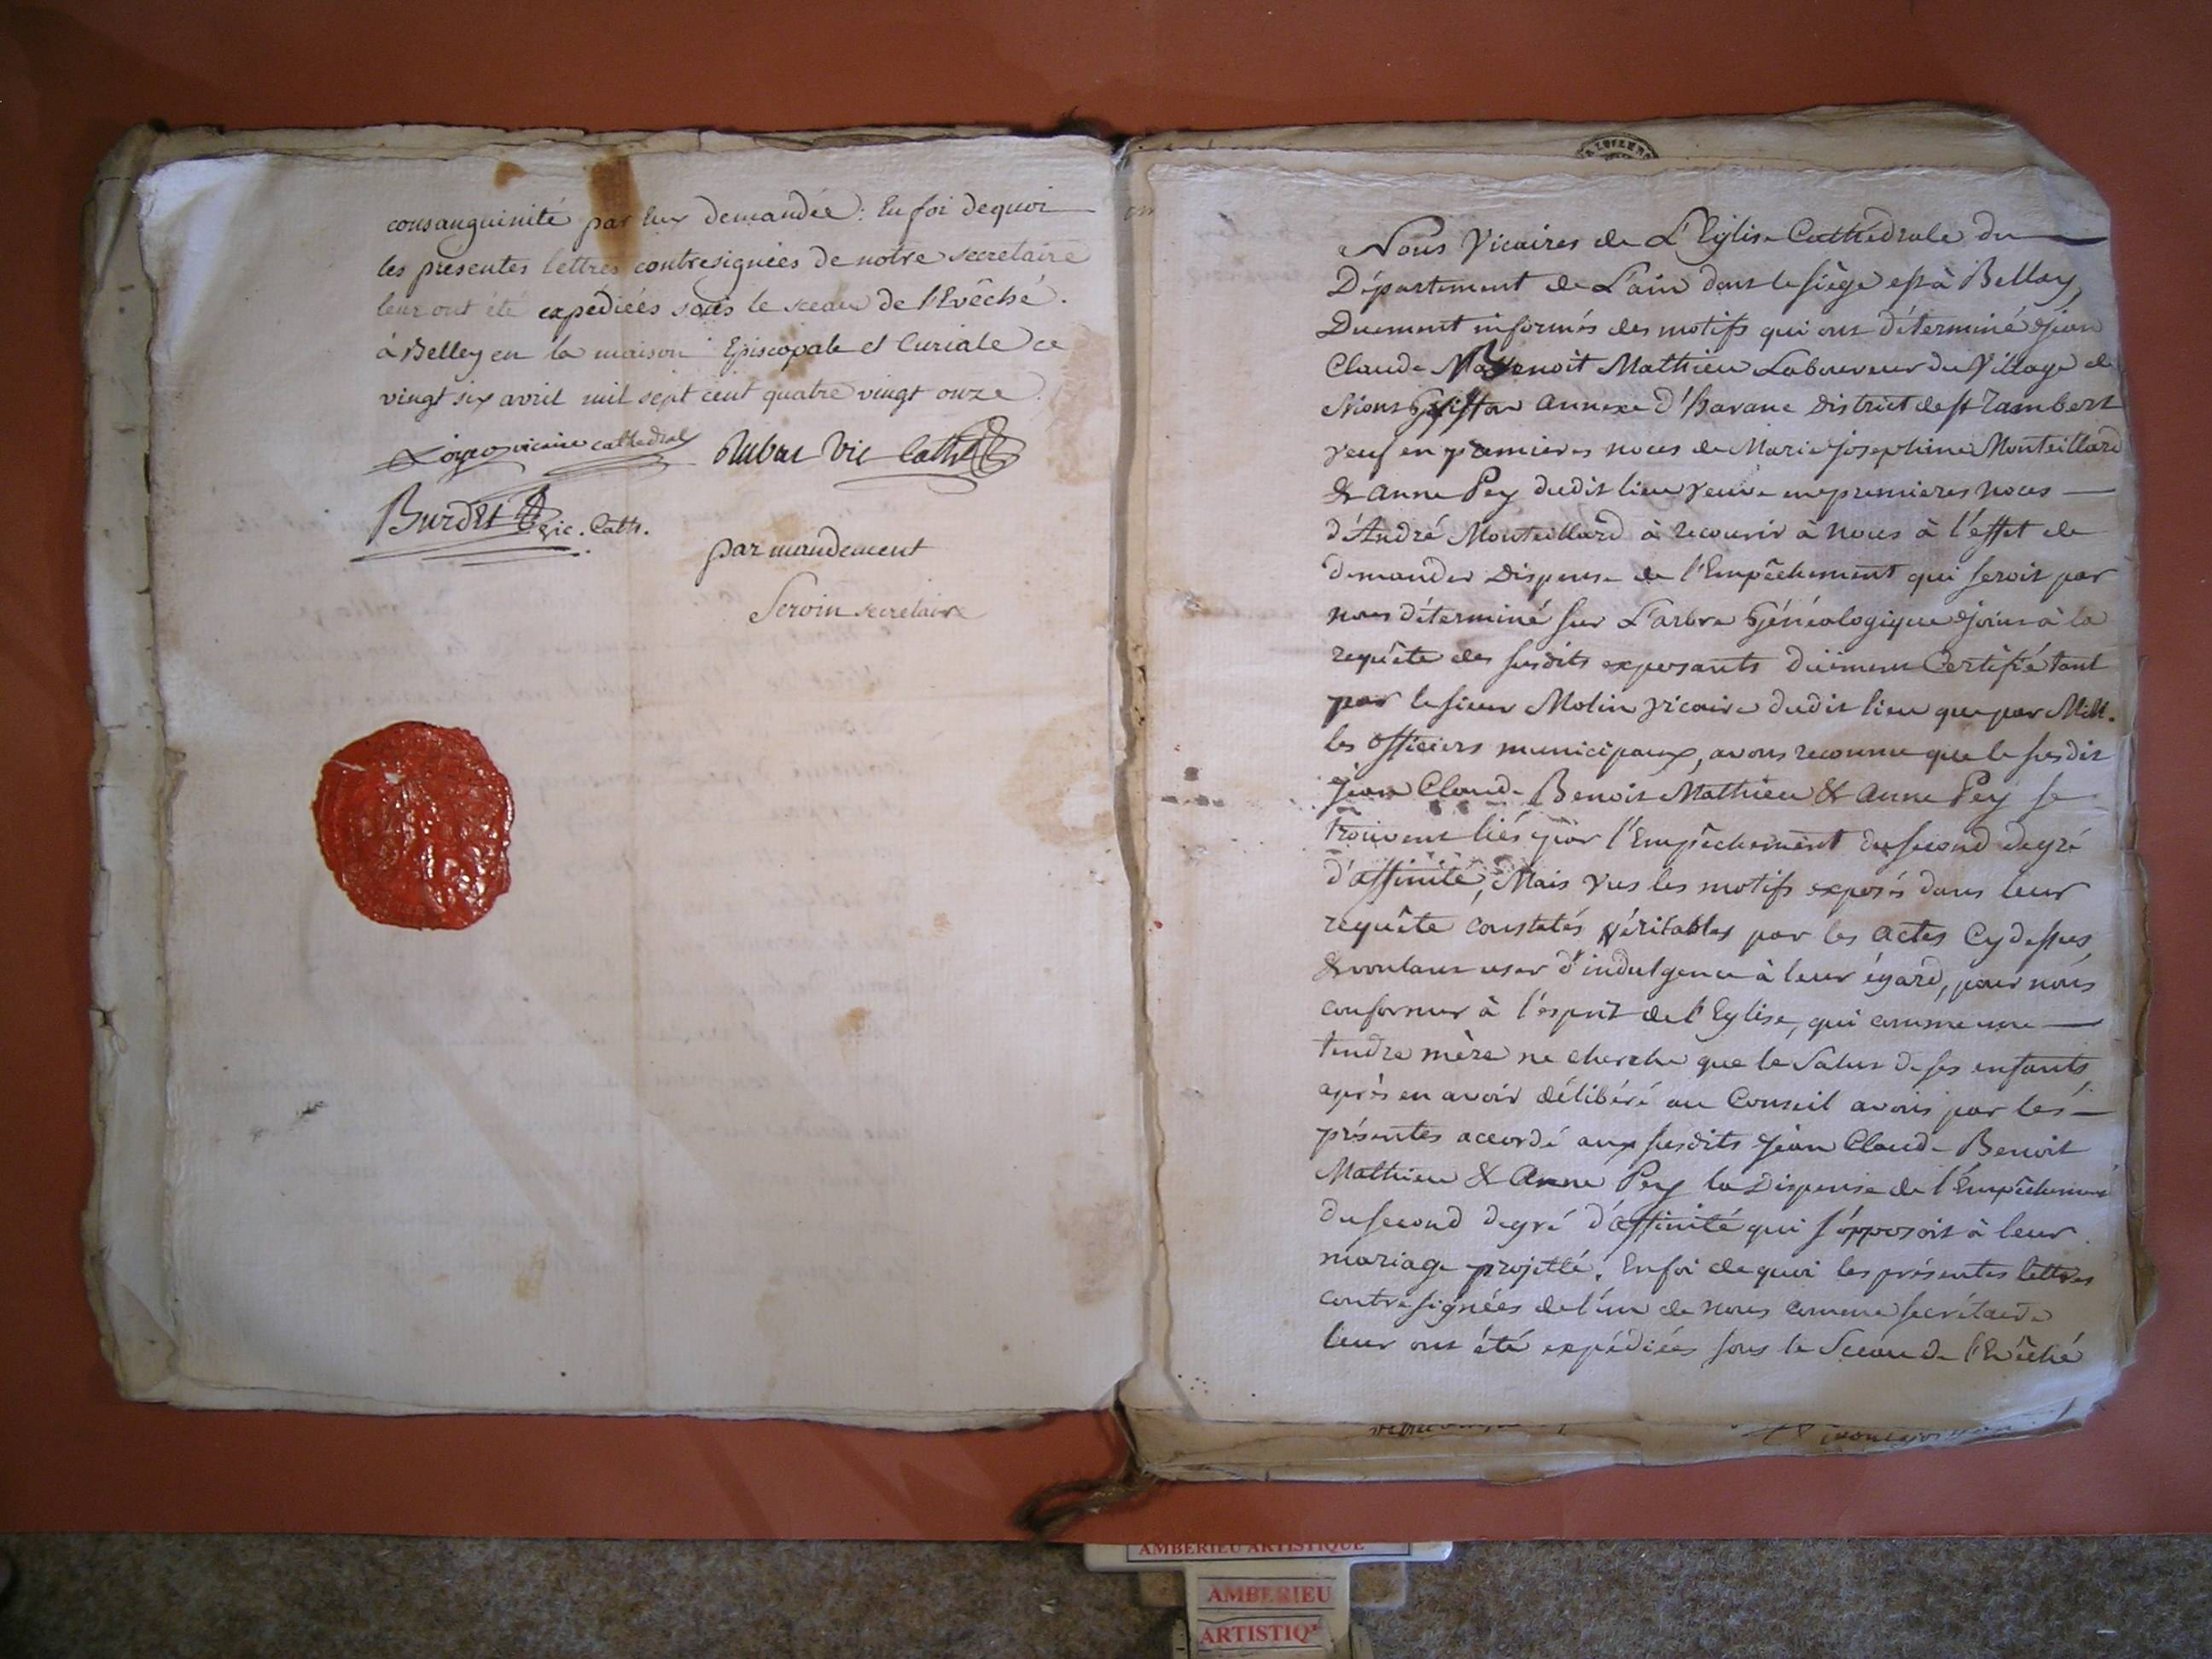 consanguinité par Eux demandée : En foi dequoi
les presentes lettres contresignées de notre secretaire
leur ont été expédiées sous le sceau de l'Evêché.
à Belley en la maison Episcopale et Curiale ce
vingt six avril mil sept cent quatre vingt onze.
vicaire cathedral
Vic Cath
Burdet vic. Cath.
par mandement
secretaire
Nous Vicaires de L'Eglise Cathédrale du
Département de L'ain dont le siège est à Belley,
Duement informés des motifs qui ont déterminé jean
Claude Benoit Mathieu Laboureur du Village de
Mont Griffon annexe d'Aarane District de st Rambert
veuf en premieres noces de Marie josephine Monteillard
& anne Pey dudit lieu veuve en premieres noces
d'André Monteillard à recourir à nous à l'effet de
demander Dispense de l'Empêchement qui seroit par
nous déterminé sur L'arbre Généalogique joint à la
requête des susdits exposants düement Certifié tant
par le sieur Molin vicaire dudit lieu que par MM.
les officiers municipaux, avons reconnu que le susdit
jean Claude Benoit Mathieu & anne Pey se
trouvent liés par l'Empêchement du second degré
d'affinité, Mais vus les motifs exposés dans leur
requête constatés véritables par les actes Cy dessus,
& voulant user d'indulgence à leur égard, pour nous
conformer à l'esprit de l'Eglise, qui comme une
tendre mère ne cherche que le Salut de ses enfants,
après en avoir délibéré au Conseil avons par les
présentes accordé aux susdits jean Claude Benoit
Mathieu & Anne Pey la Dispense de l'Empêchement
du second degré d'affinité qui s'opposoit à leur
mariage projetté. En foi de quoi les présentes lettres
contresignées de l'un de nous comme secrétaire
leur ont été expédiées sous le Sceau de l'Evêché
AMBERIEU ARTISTIQUE
AMBERIEU
ARTISTIQ